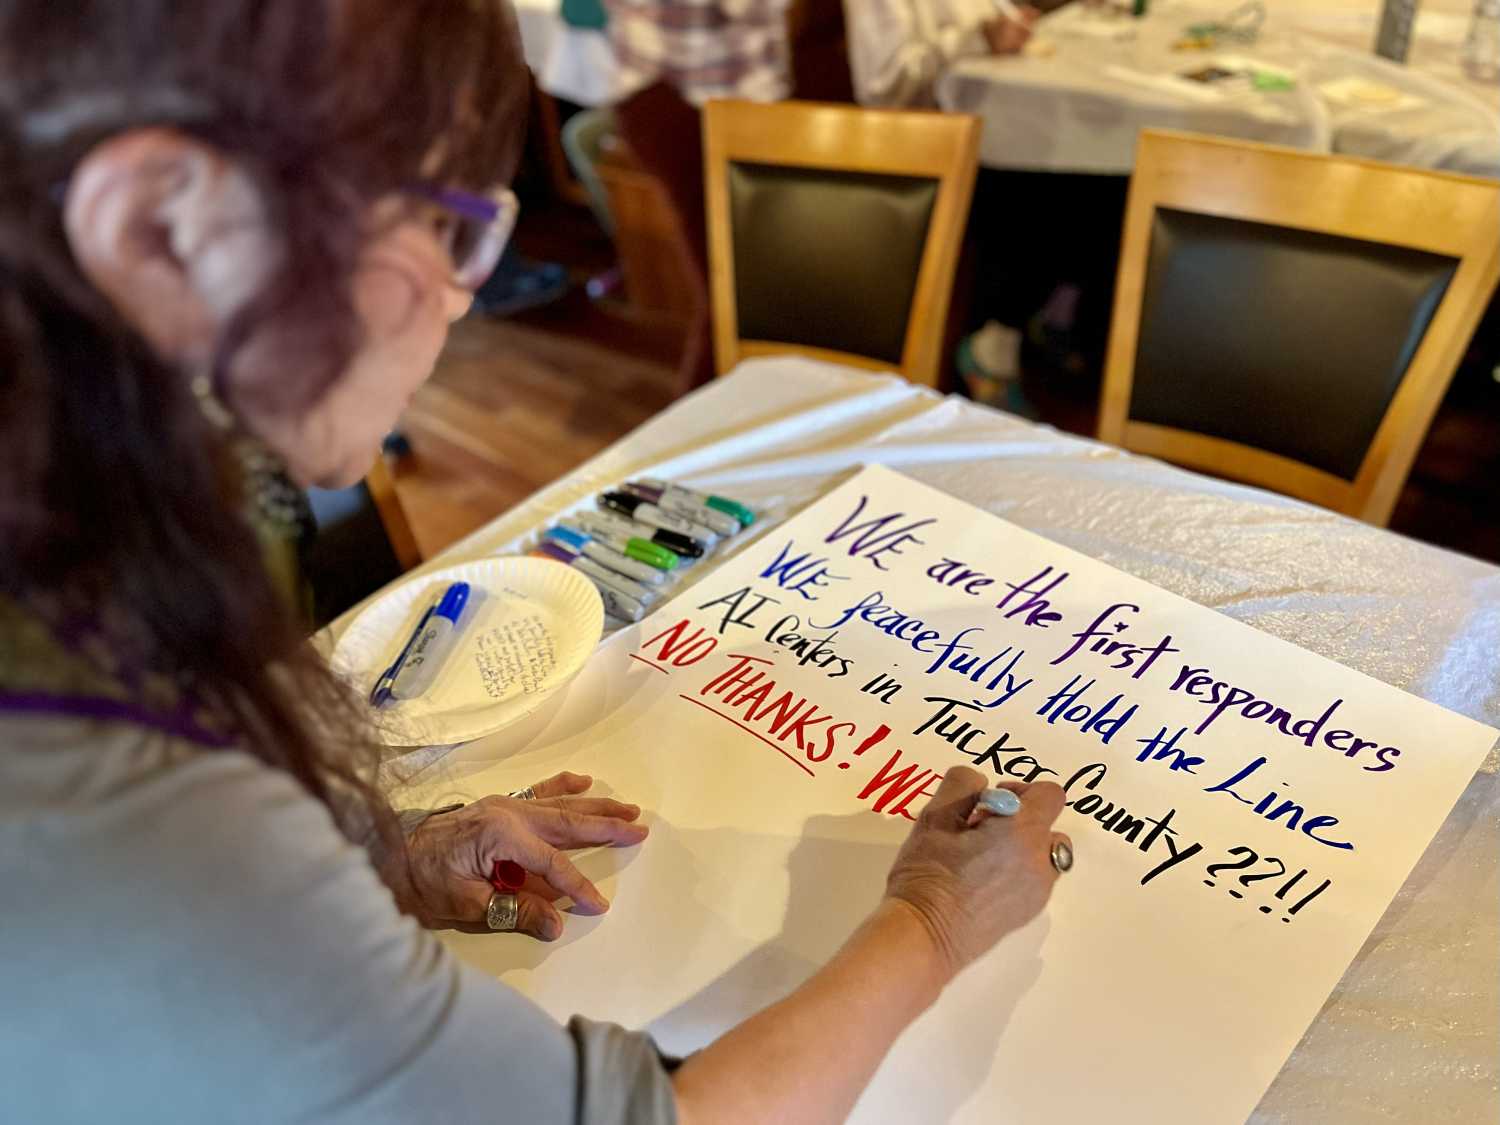 WE are the first responders
WE peacefully Hold the Line
AI Centers in Tucker County ??!!
NO THANKS! WE
Sharpie